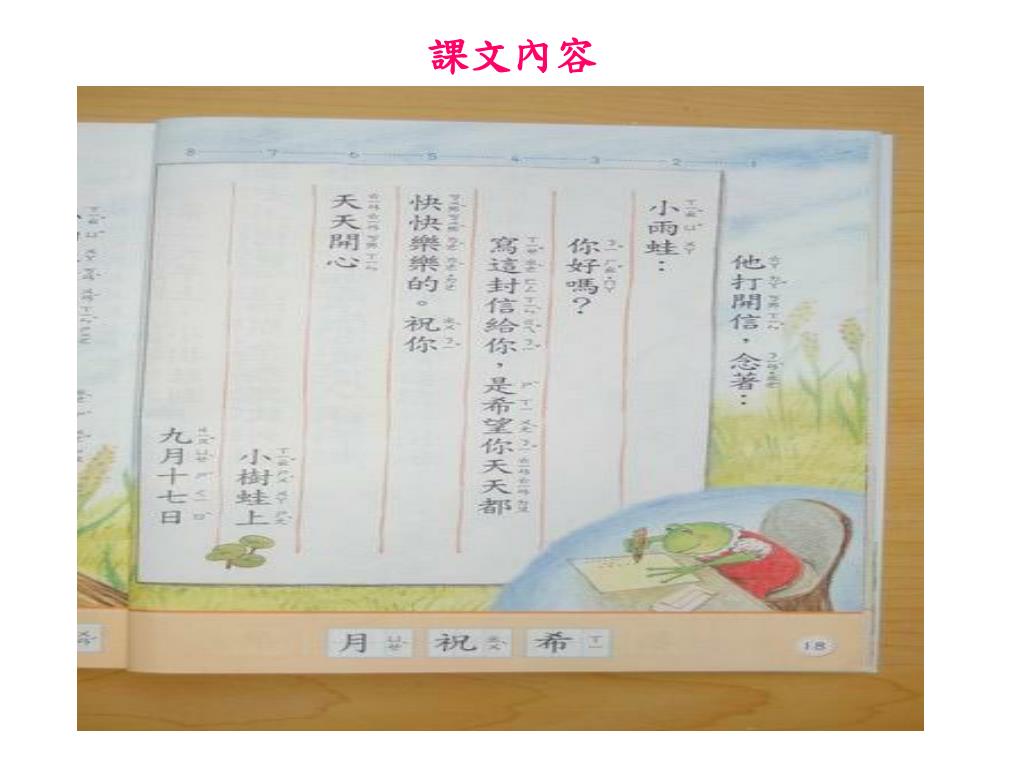 課文內容
8 7 6 5 4 3 2 1
他打開信，念著：
小雨蛙：
你好嗎？
寫這封信給你，是希望你天天都
快快樂樂的。祝你
天天開心
小樹蛙上
九月十七日
月 ㄩㄝˋ 祝 ㄓㄨˋ 希 ㄒㄧ
18